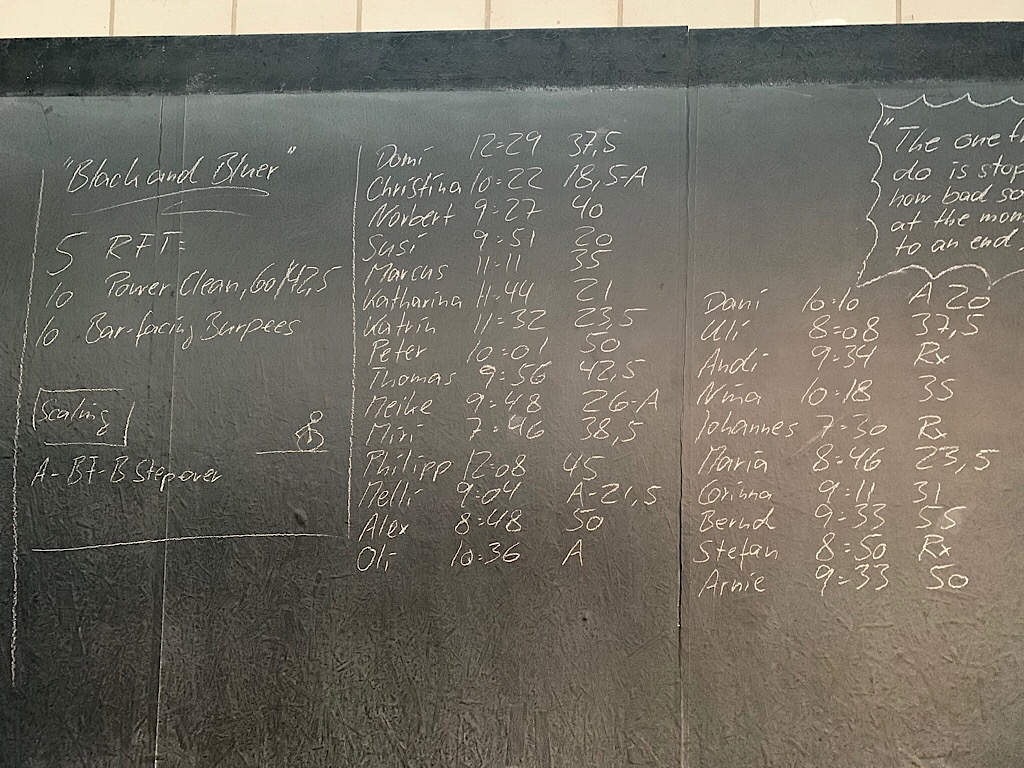 "Black and Bluer"
5 RFT:
10 Power Clean, 60/42,5
10 Bar-facing Burpees
Scaling
A- BF-B Stepover
Domi 12:29 37,5
Christina 10:22 18,5-A
Norbert 9:27 40
Susi 9:51 20
Marcus 11:11 35
Katharina 11:44 21
Katrin 11:32 23,5
Peter 10:01 50
Thomas 9:56 42,5
Meike 9:48 26-A
Miri 7:46 38,5
Philipp 12:08 45
Melli 9:04 A-21,5
Alex 8:48 50
Oli 10:36 A
"The one
do is stop
how bad so
at the mom
to an end,
Dani 10:10 A 20
Uli 8:08 37,5
Andi 9:34 Rx
Nina 10:18 35
Johannes 7:30 Rx
Maria 8:46 23,5
Corinna 9:11 31
Bernd 9:33 55
Stefan 8:50 Rx
Arnie 9:33 50